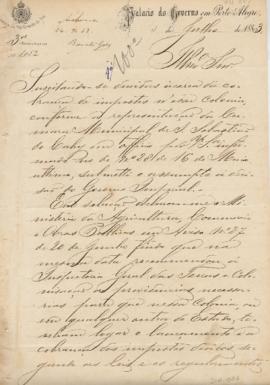 Palacio do Governo em Porto Alegre,
de Julho de 1883
3ª
Illmo Snr.
Suscitando-se duvidas ácerca da co-
brança de impostos n'essa Colonia,
conforme a representação da Ca-
mara Municipal de S. Sebastião
do Cahy em officio
de 16 de Maio
ultimo, submetti o assumpto á deci-
são do Governo Imperial.
Em solução declarou-me o Mi-
nisterio da Agricultura, Commercio
e Obras Publicas em Aviso nº 27
de 20 de Junho findo que na
mesma data recommendou á
Inspectoria Geral das Terras e Colo-
nisação as providencias necessa-
rias para que nessa Colonia, ou
em qualquer outra do Estado, te-
nham logar o lançamento e a
cobrança dos impostos
as leis e os regulamentos